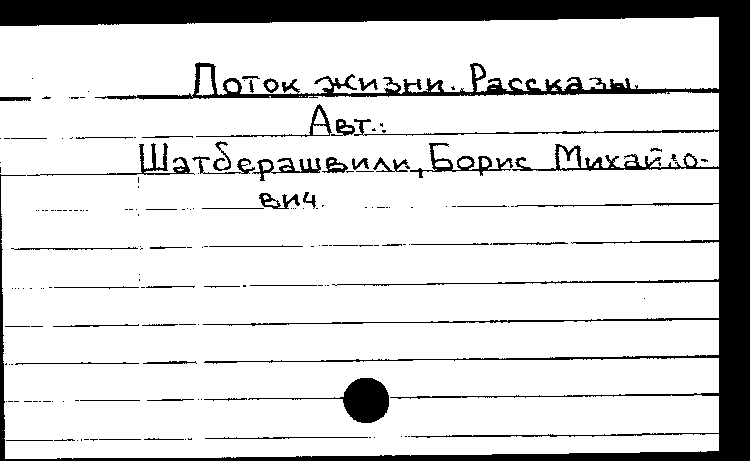 Поток жизни. Рассказы.
Авт.:
Шатберашвили, Борис Михайло-
вич.